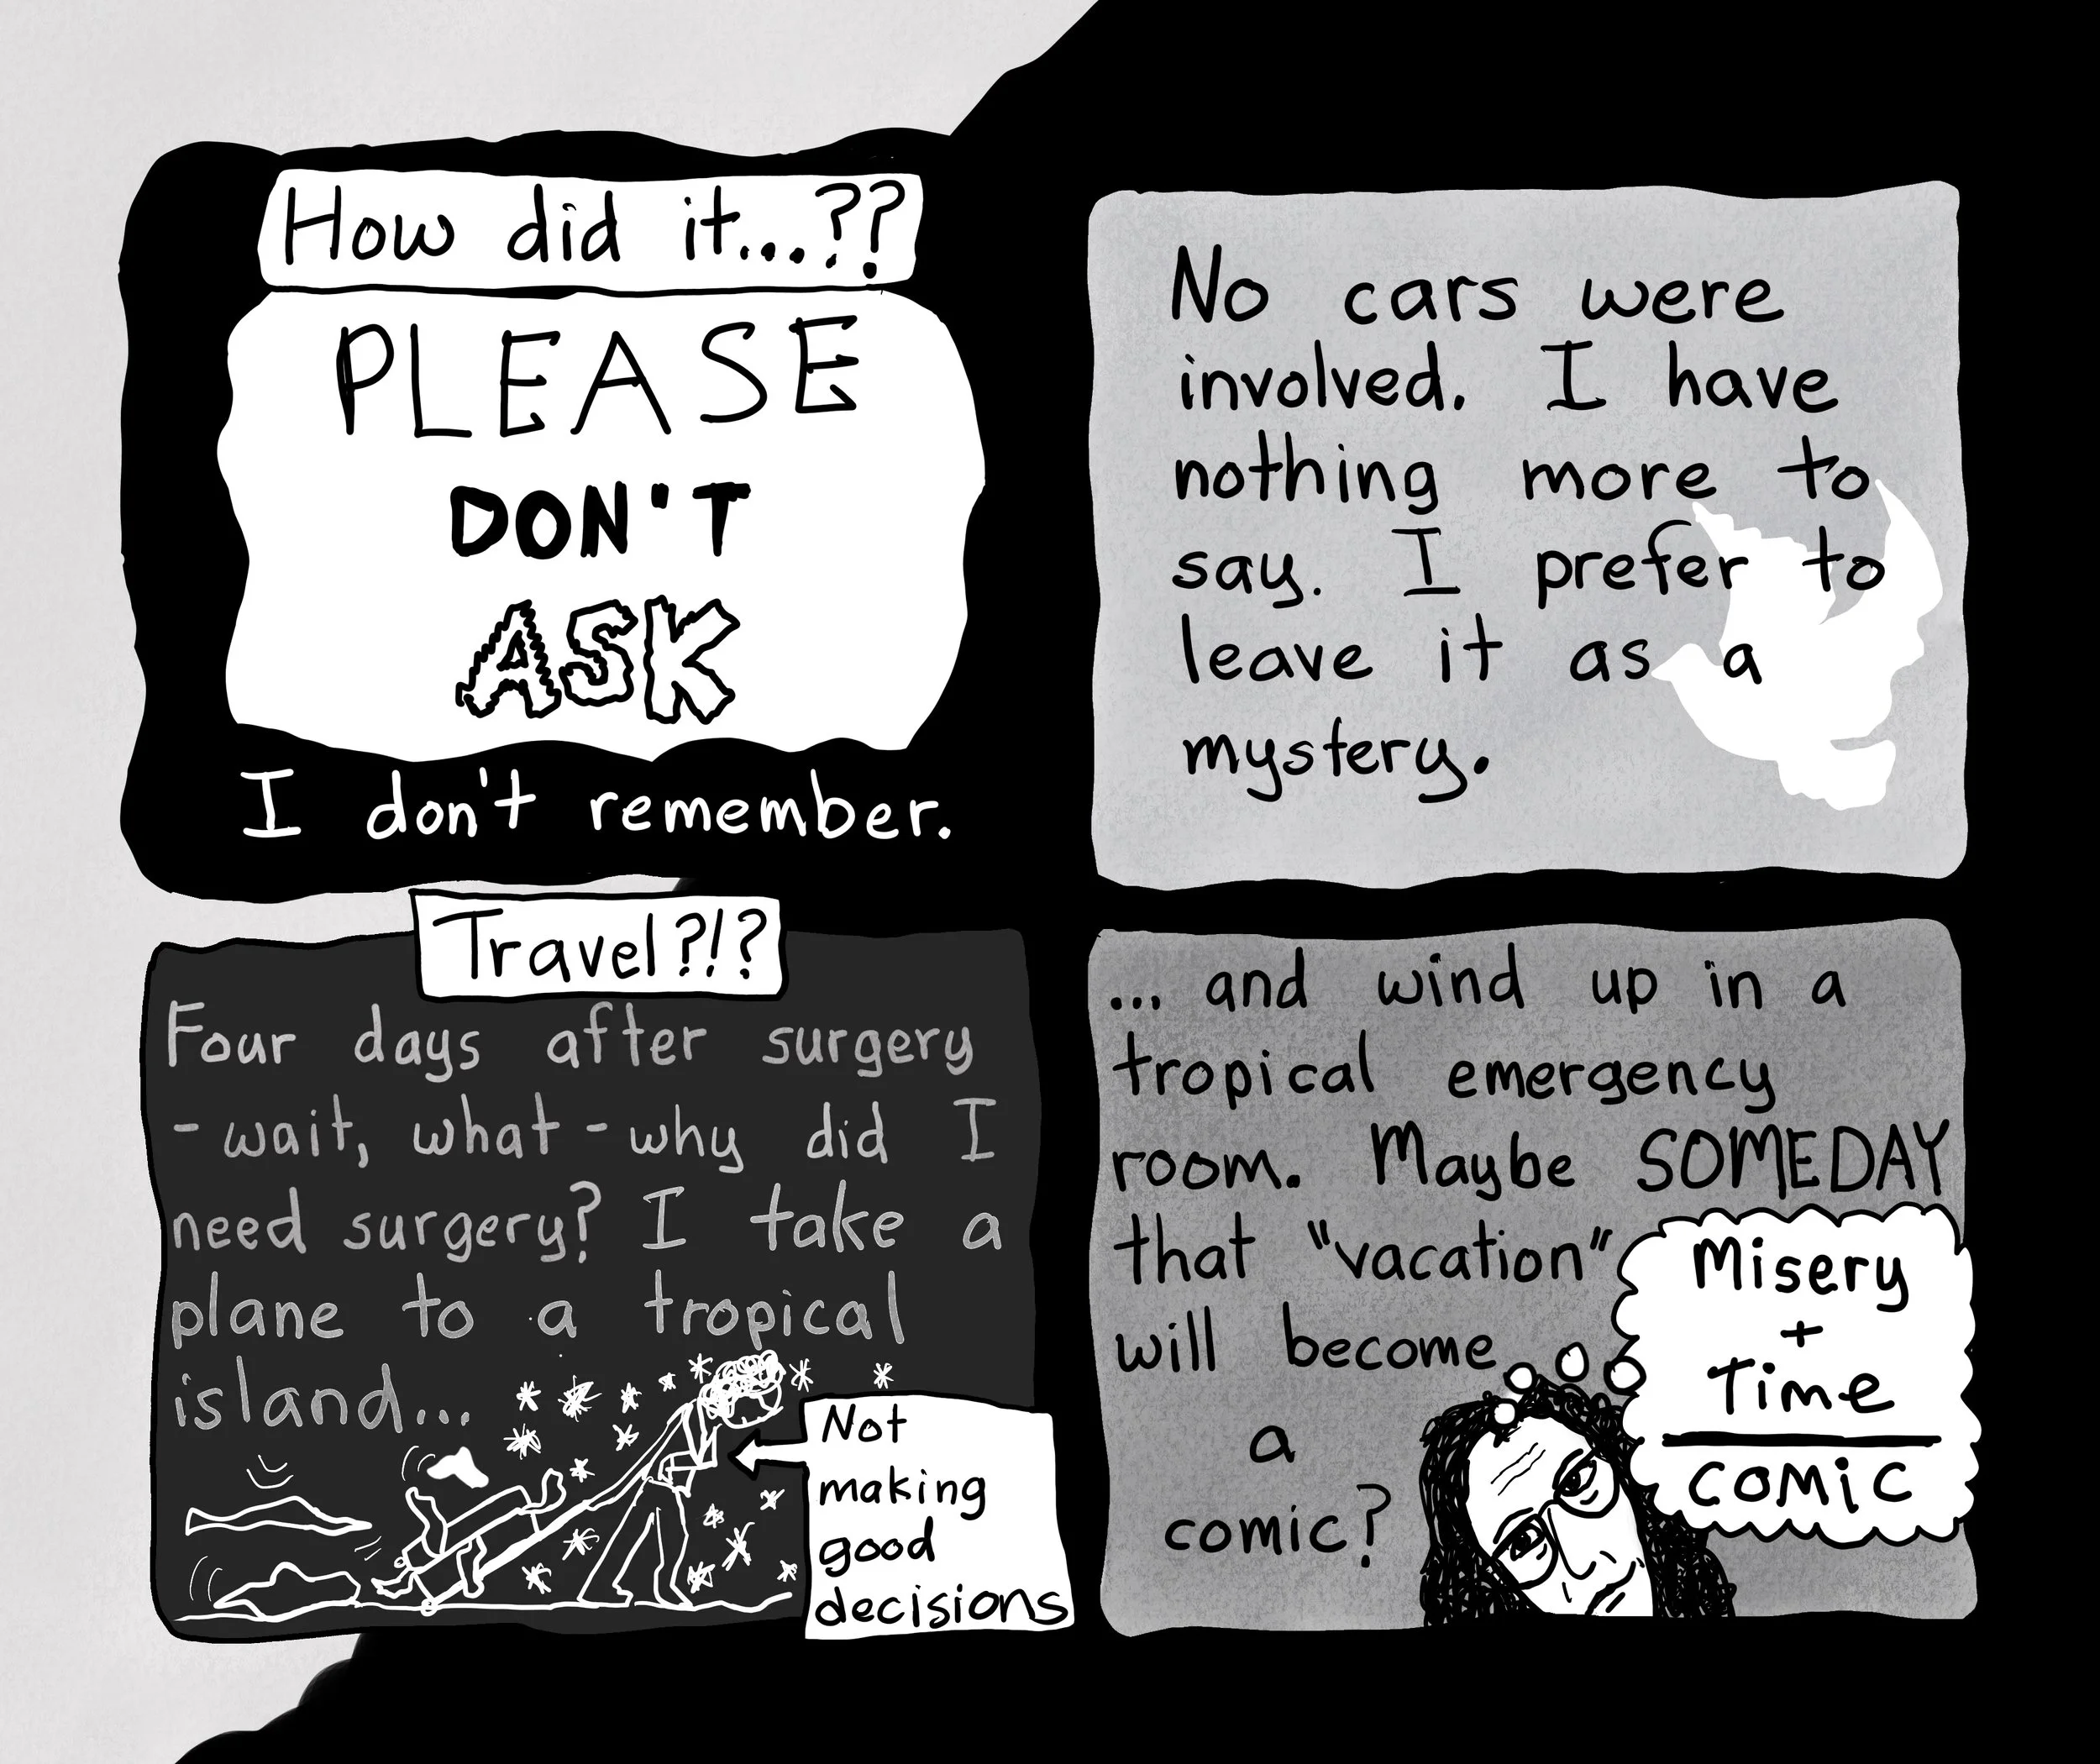 How did it...??
PLEASE
DON'T
ASK
I don't remember.
No cars were
involved. I have
nothing more to
say. I prefer to
leave it as a
mystery.
Travel?!?
Four days after surgery
- wait, what - why did I
need surgery? I take a
plane to a tropical
island...
Not
making
good
decisions
... and wind up in a
tropical emergency
room. Maybe SOMEDAY
that "vacation"
will become
a
comic?
Misery
+
Time
COMIC